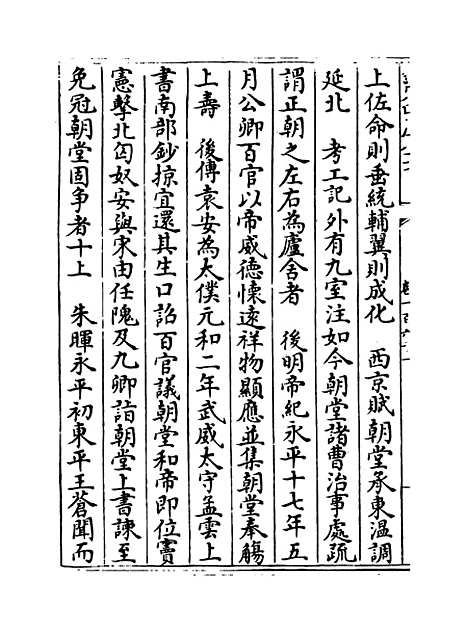 上佐命則垂統輔翼則成化　西京賦朝堂承東溫調
延北　考工記外有九室注如今朝堂諸曹治事處疏
謂正朝之左右為廬舍者　後明帝紀永平十七年五
月公卿百官以帝威德懷遠祥物顯應並集朝堂奉觴
上壽　後傳袁安為太僕元和二年武威太守孟雲上
書南部鈔掠宜還其生口詔百官議朝堂和帝即位竇
憲擊北匈奴安與宋由任隗及九卿詣朝堂上書諫至
免冠朝堂固爭者十上　朱暉永平初東平王蒼聞而